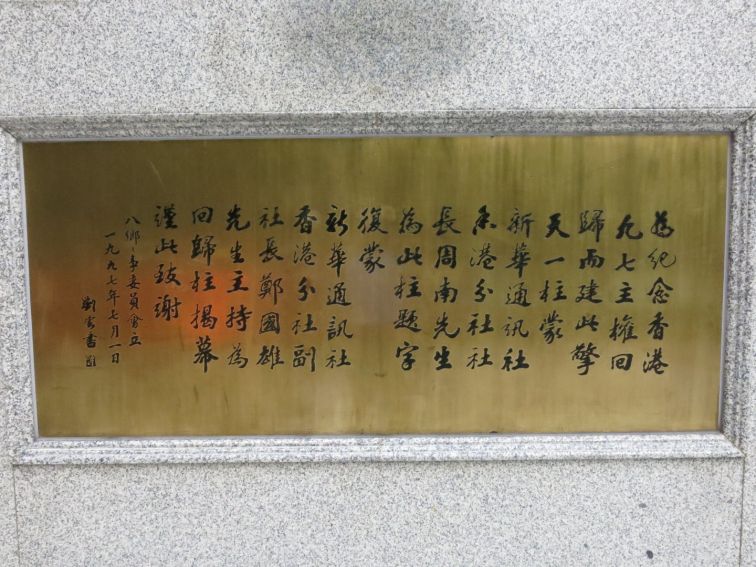 為紀念香港
九七主權回
歸而建此擎
天一柱蒙
新華通訊社
香港分社社
長周南先生
為此柱題字
復蒙
新華通訊社
香港分社副
社長鄭國雄
先生主持為
回歸柱揭幕
謹此致謝
八鄉鄉事委員會立
一九九七年七月一日
劉雲書